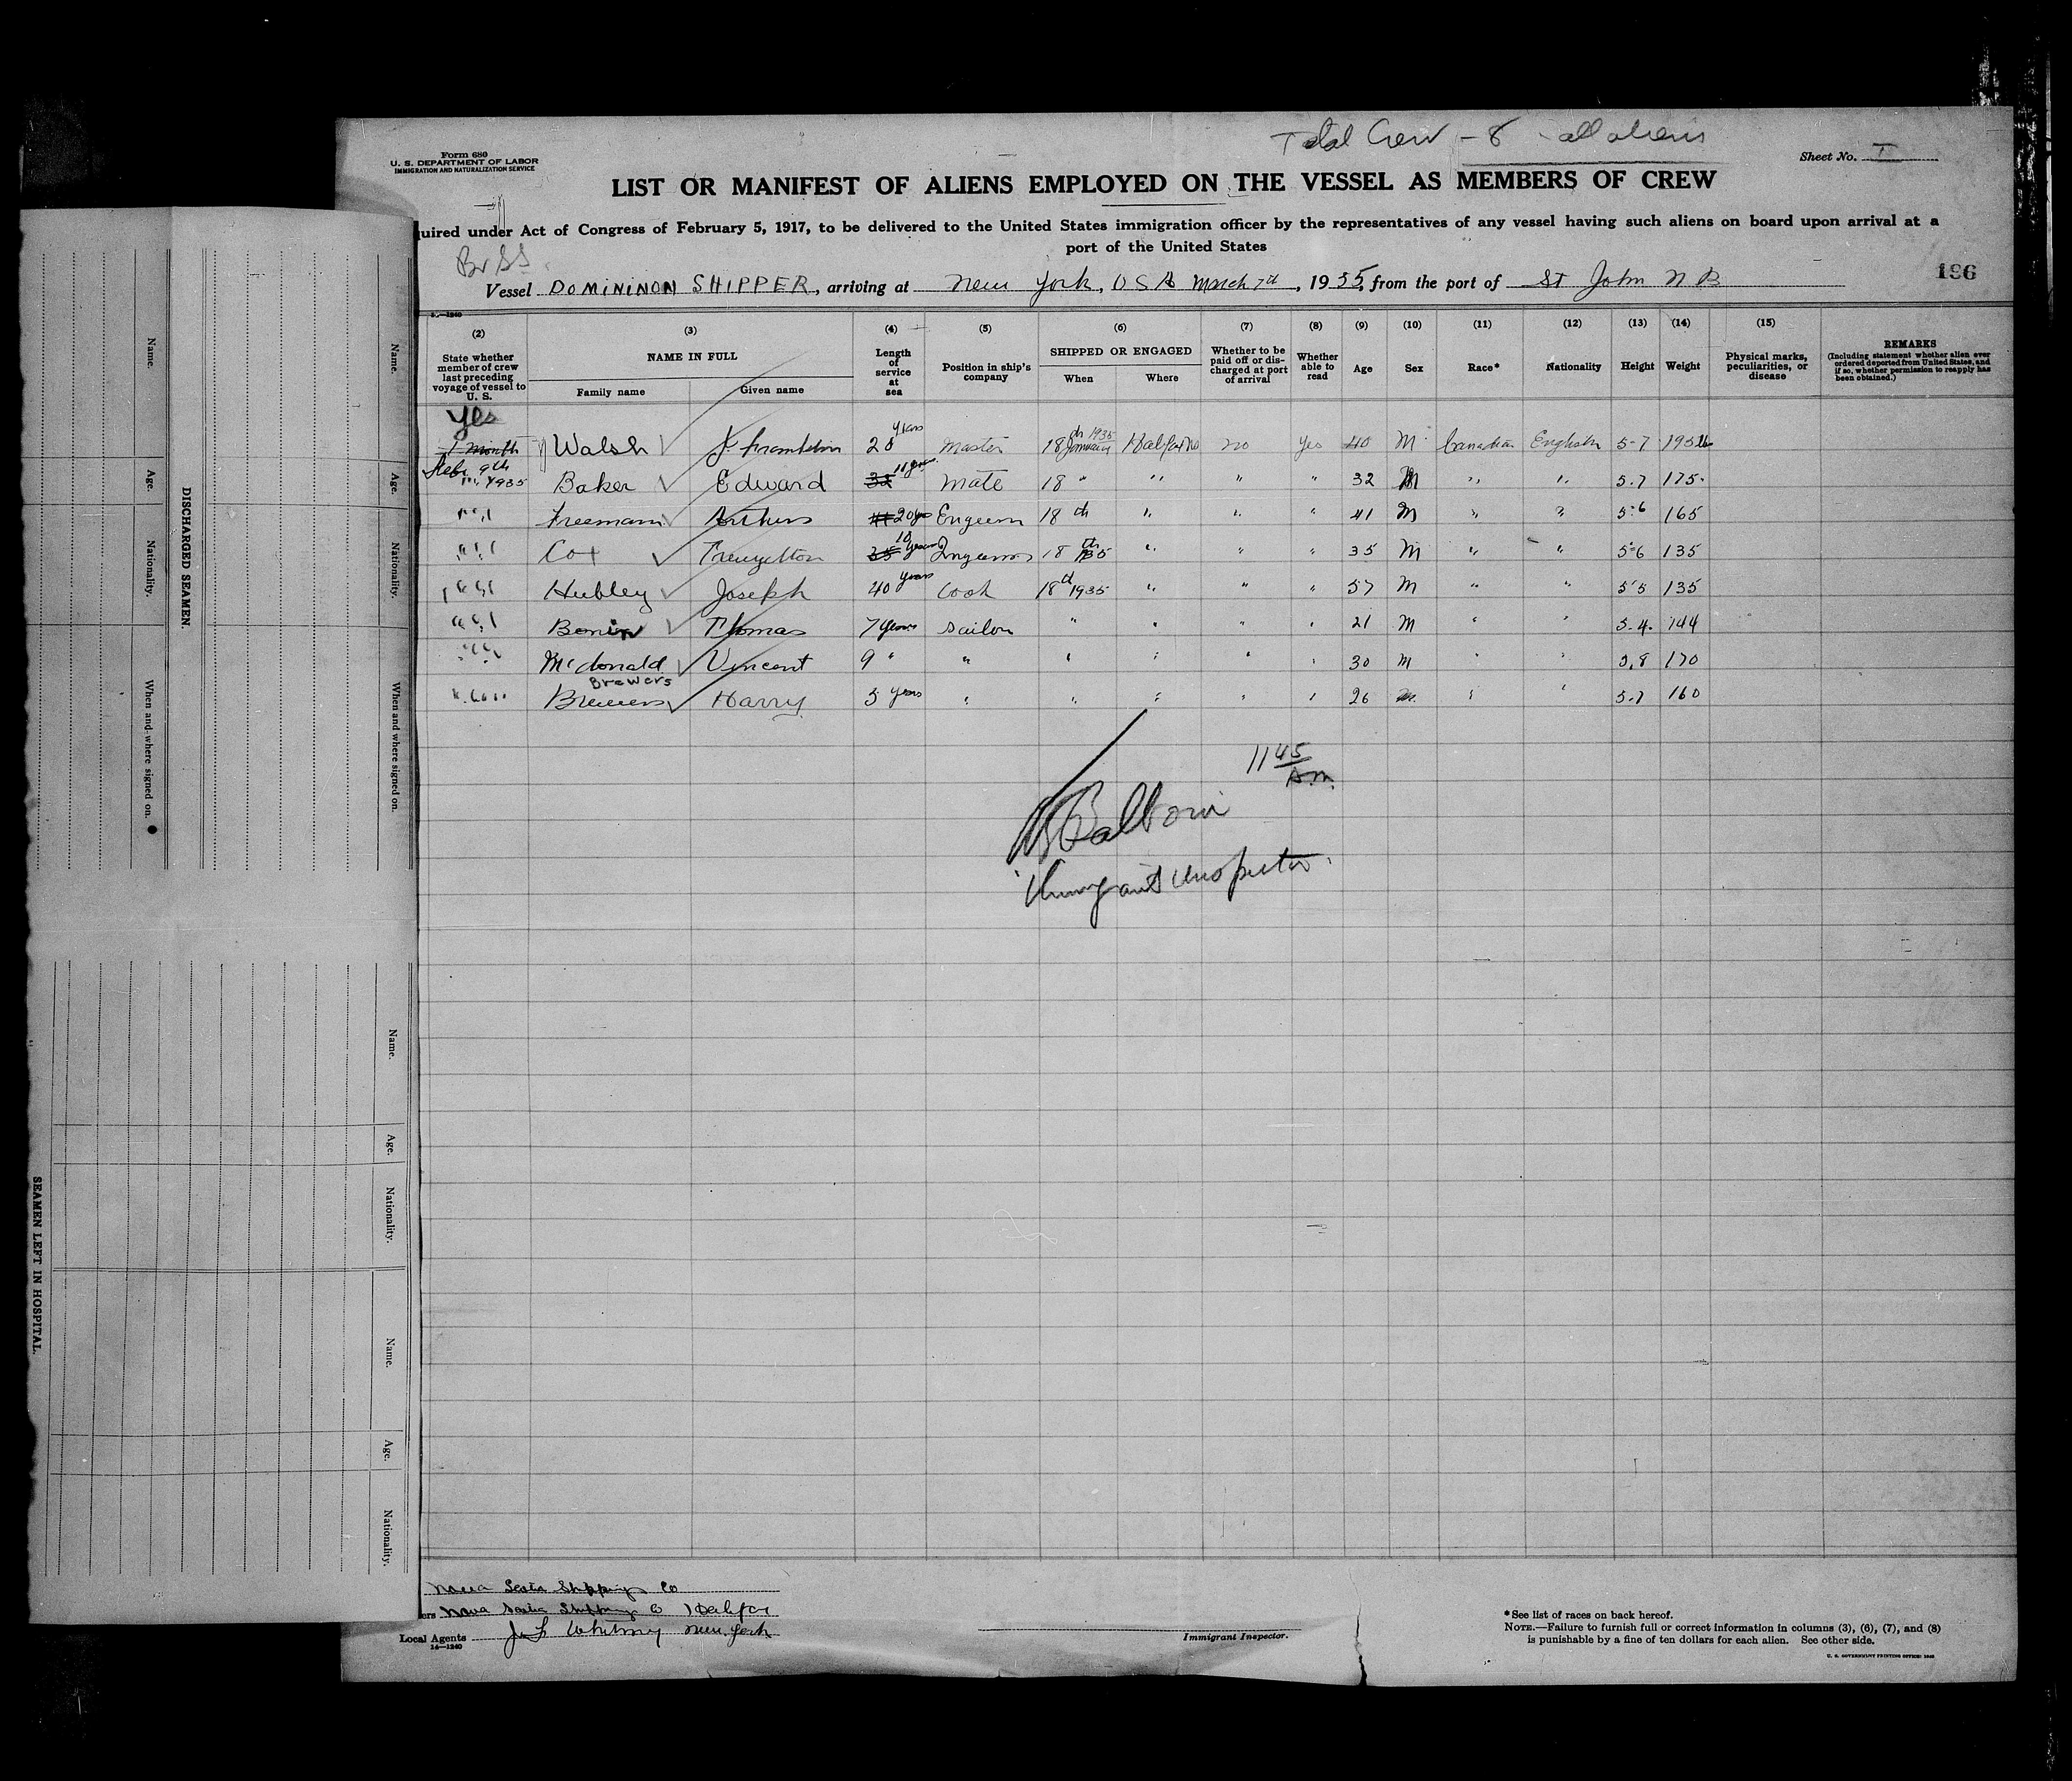 Total Crew - 8 - all aliens
Form 680
U. S. DEPARTMENT OF LABOR
IMMIGRATION AND NATURALIZATION SERVICE
Sheet No. I
LIST OR MANIFEST OF ALIENS EMPLOYED ON THE VESSEL AS MEMBERS OF CREW
uired under Act of Congress of February 5, 1917, to be delivered to the United States immigration officer by the representatives of any vessel having such aliens on board upon arrival at a
port of the United States
Br SS
186
Vessel DOMININON SHIPPER, arriving at New York, USA March 7th, 1935, from the port of St John N B
(2) (3) (4) (5) (6) (7) (8) (9) (10) (11) (12) (13) (14) (15)
State whether member of crew last preceding voyage of vessel to U. S.
NAME IN FULL
Family name
Given name
Length of service at sea
Position in ship's company
SHIPPED OR ENGAGED
When
Where
Whether to be paid off or discharged at port of arrival
Whether able to read
Age
Sex
Race*
Nationality
Height
Weight
Physical marks, peculiarities, or disease
REMARKS
(Including statement whether alien ever ordered deported from United States, and if so, whether permission to reapply has been obtained.)
Yes
1 month Walsh J Franklin 28 years Master 18 January 1935 Halifax NS no Yes 40 M Canadian English 5-7 195
Febr 9th 1935 Baker Edward 32 11 yrs Mate 18 " " " " 32 M " " 5-7 175
" " Freeman 41 20 yrs 18 th " " " 41 M " " 5-6 165
" " Cox 35 18 years 18 th 35 " " " 35 M " " 5-6 135
" " Hubley Joseph 40 years Cook 18th 1935 " " " 57 M " " 5-5 135
" " Thomas 7 years Sailor " " " " 21 M " " 5-4 144
" " McDonald Vincent 9 " " " " " " 30 M " " 5-8 170
Brewers
" " Brewers Harry 5 years " " " " " 26 M " " 5-7 160
11 45 AM
Immigrant Inspector
Nova Scotia Shipping Co
ers Nova Scotia Shipping Co Halifax
Local Agents Whitney New York
14—1240
Immigrant Inspector.
*See list of races on back hereof.
NOTE.—Failure to furnish full or correct information in columns (3), (6), (7), and (8)
is punishable by a fine of ten dollars for each alien. See other side.
U. S. GOVERNMENT PRINTING OFFICE
DISCHARGED SEAMEN.
Name.
Age.
Nationality.
When and where signed on.
Name.
Age.
Nationality.
When and where signed on.
SEAMEN LEFT IN HOSPITAL.
Name.
Age.
Nationality.
Name.
Age.
Nationality.